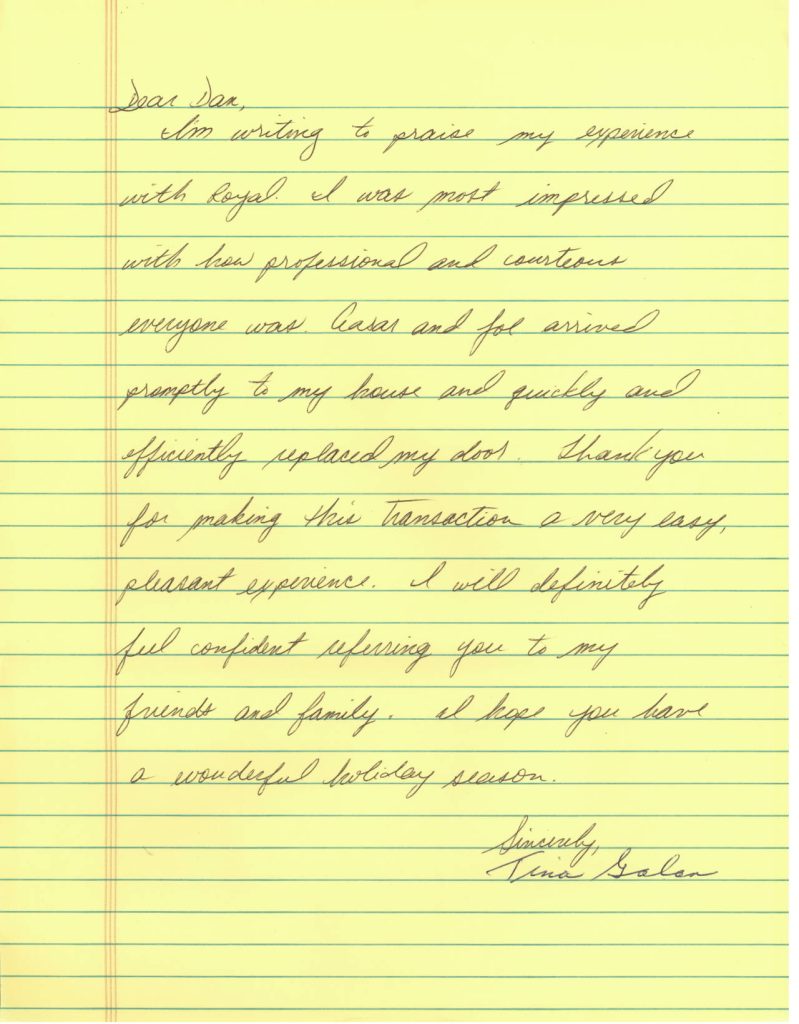 Dear Dan,
I'm writing to praise my experience
with Royal. I was most impressed
with how professional and courteous
everyone was. and Joe arrived
promptly to my house and quickly and
efficiently replaced my door. Thank you
for making this transaction a very easy,
pleasant experience. I will definitely
feel confident referring you to my
friends and family. I hope you have
a wonderful holiday season.
Sincerely,
Tina Galan